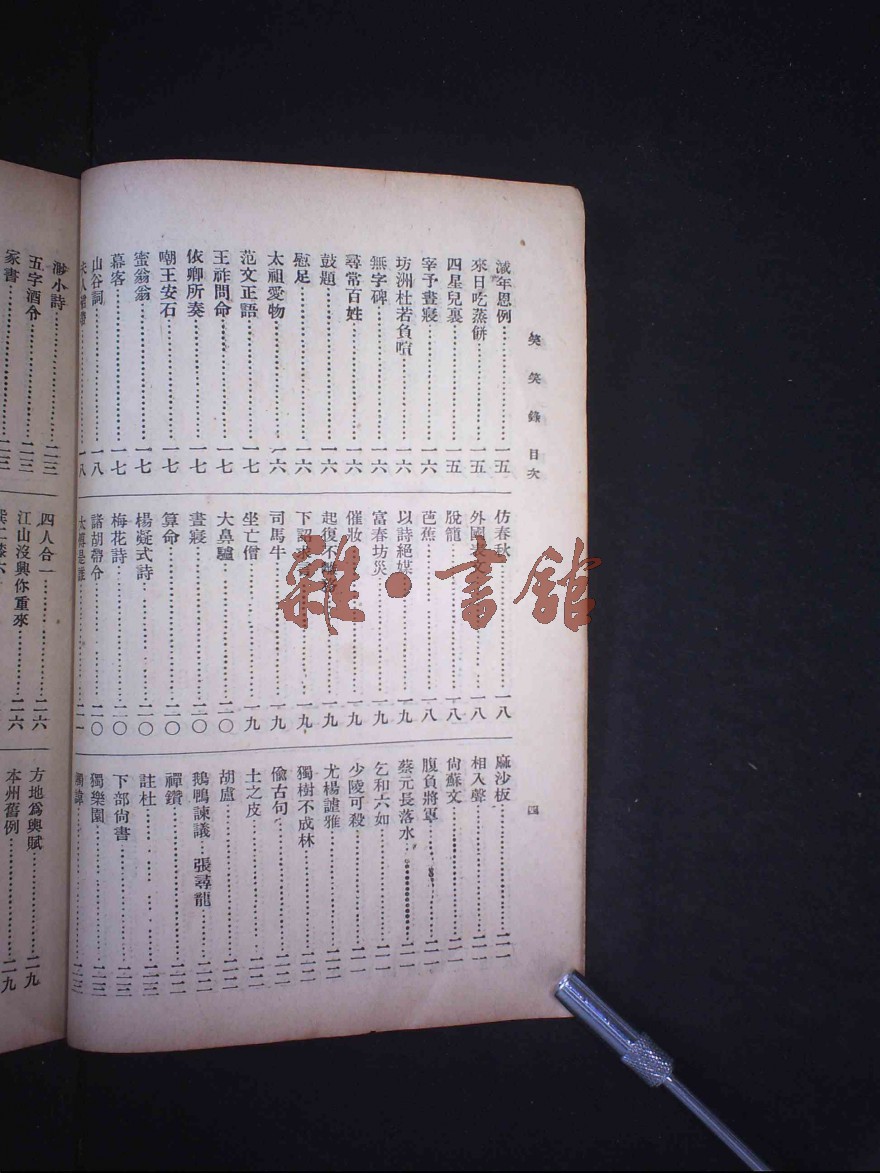 笑笑錄目次
四
減年恩例 一五
來日吃蒸餠 一五
四星兒裏 一五
宰予晝寢 一六
坊洲杜若負喧 一六
無字碑 一六
尋常百姓 一六
鼓題 一六
慰足 一六
太祖愛物 一六
范文正語 一七
王祚問命 一七
依卿所奏 一七
嘲王安石 一七
蜜翁翁 一七
幕客 一七
山谷詞 一八
一八
仿春秋 一八
外國表文 一八
脫籠 一八
芭蕉 一八
以詩絕媒 一九
富春坊災 一九
催妝 一九
起復不 一九
下詔求 一九
司馬牛 一九
坐亡僧 一九
大鼻驢 二〇
晝寢 二〇
算命 二〇
楊凝式詩 二〇
梅花詩 二〇
諸胡帶令 二〇
太傅是誰 二一
麻沙板 二一
相入聲 二一
尙蘇文 二一
腹負將軍 二一
蔡元長落水 二一
乞和六如 二一
少陵可殺 二一
尤楊謔雅 二一
獨樹不成林 二二
偸古句 二二
土之皮 二二
胡盧 二二
鵝鴨諫議 張尋龍 二二
禪鑽 二二
註杜 二三
下部尙書 二三
獨樂園 二三
諱 二三
渺小詩 二三
五字酒令 二三
家書 二三
四人合一 二六
江山沒興你重來 二六
方地爲輿賦 二九
本州舊例 二九
雜·書館